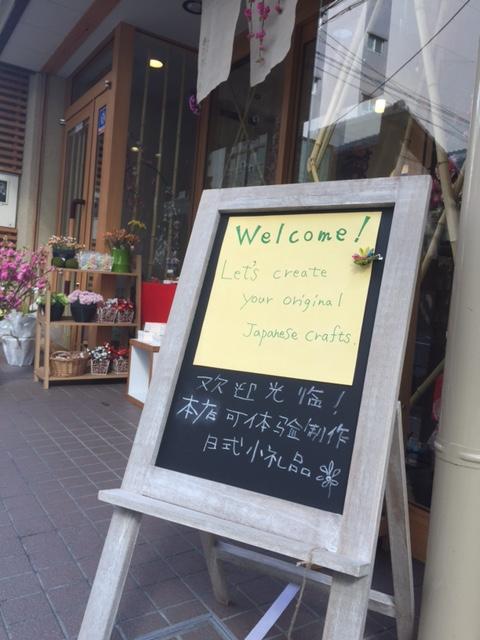 Welcome!
Let's create
your original
Japanese crafts.
欢迎光临!
本店可体验制作
日式小礼品